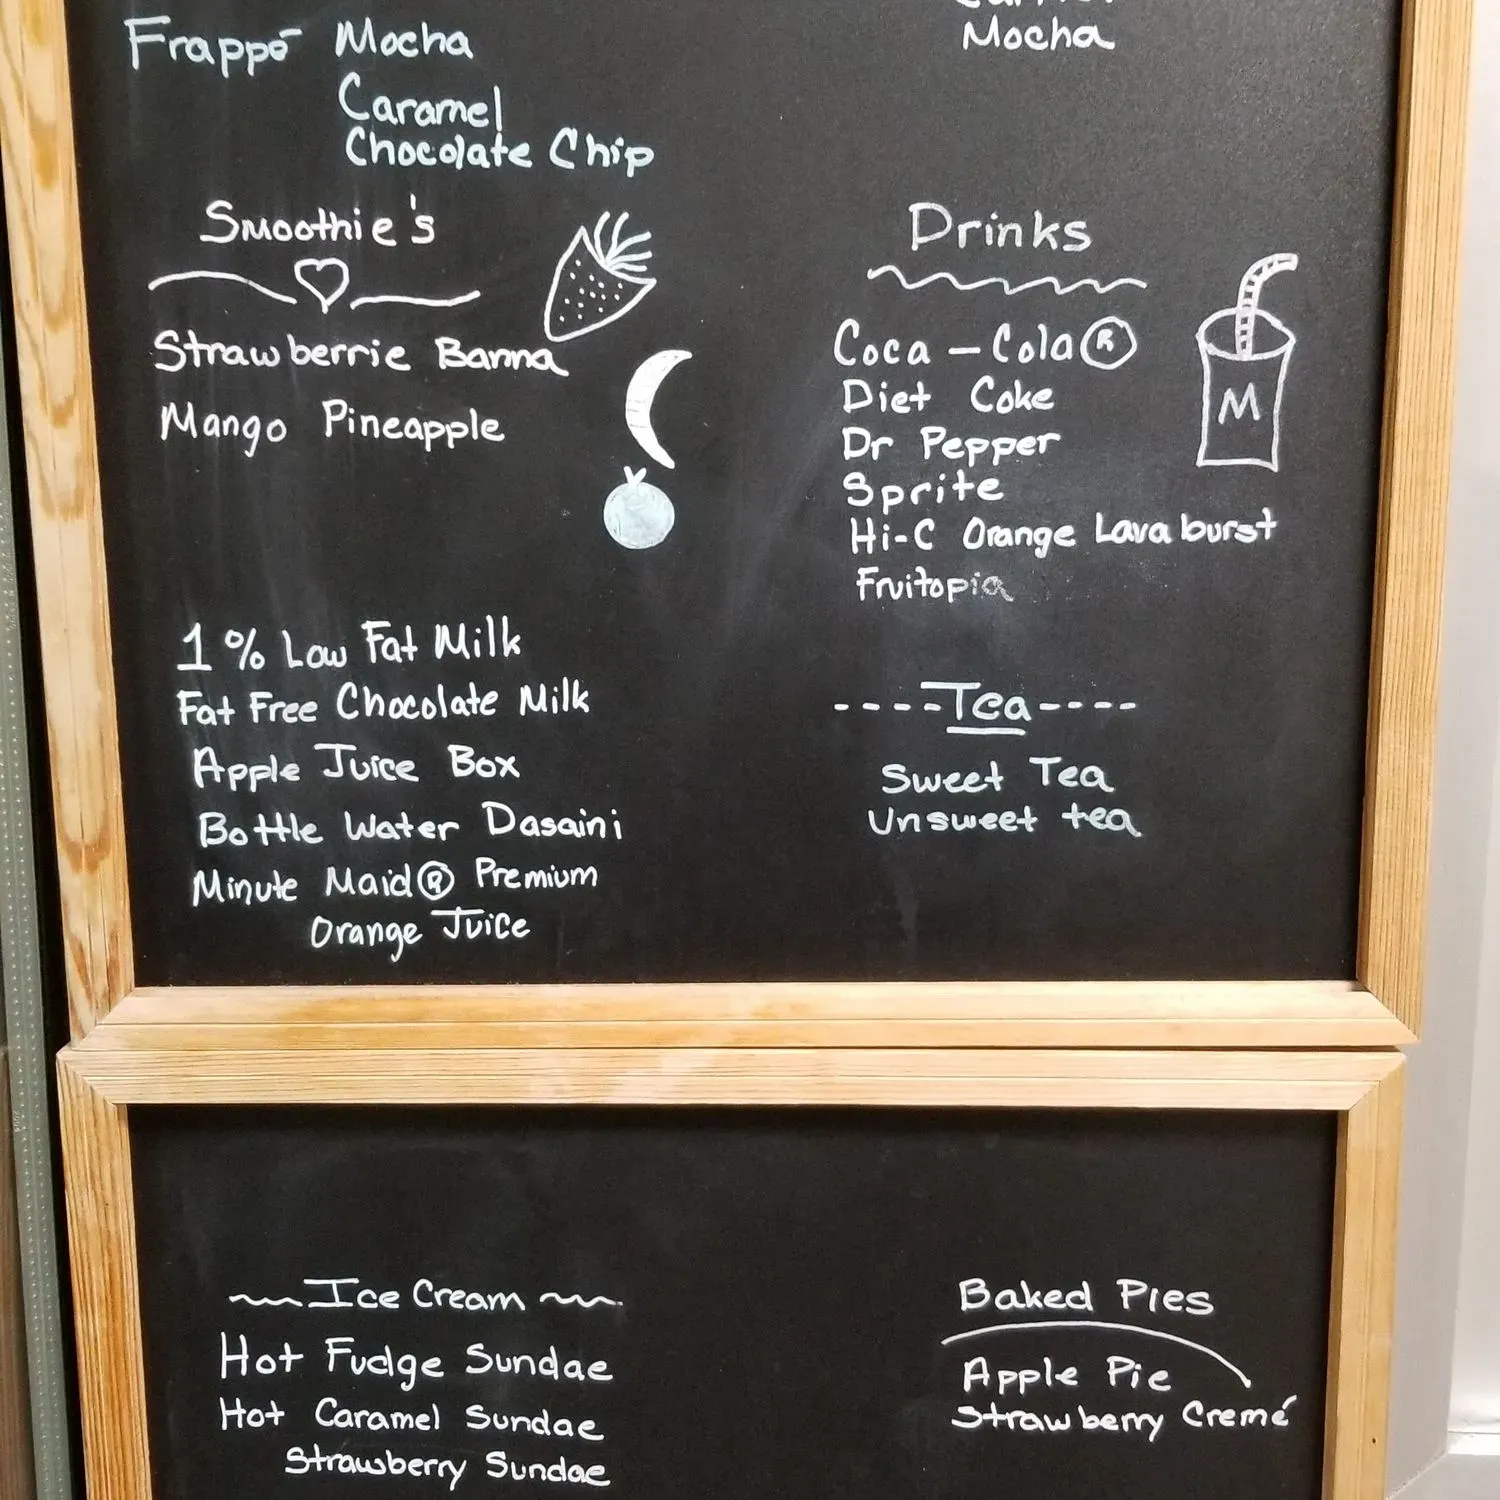 Frappé Mocha
Caramel
Chocolate Chip
Mocha
Smoothie's
Strawberrie Banna
Mango Pineapple
Drinks
Coca-Cola®
Diet Coke
Dr Pepper
Sprite
Hi-C Orange Lavaburst
Fruitopia
M
1% Low Fat Milk
Fat Free Chocolate Milk
Apple Juice Box
Bottle Water Dasaini
Minute Maid® Premium
Orange Juice
----Tea----
Sweet Tea
Unsweet tea
Ice Cream
Hot Fudge Sundae
Hot Caramel Sundae
Strawberry Sundae
Baked Pies
Apple Pie
Strawberry Cremé